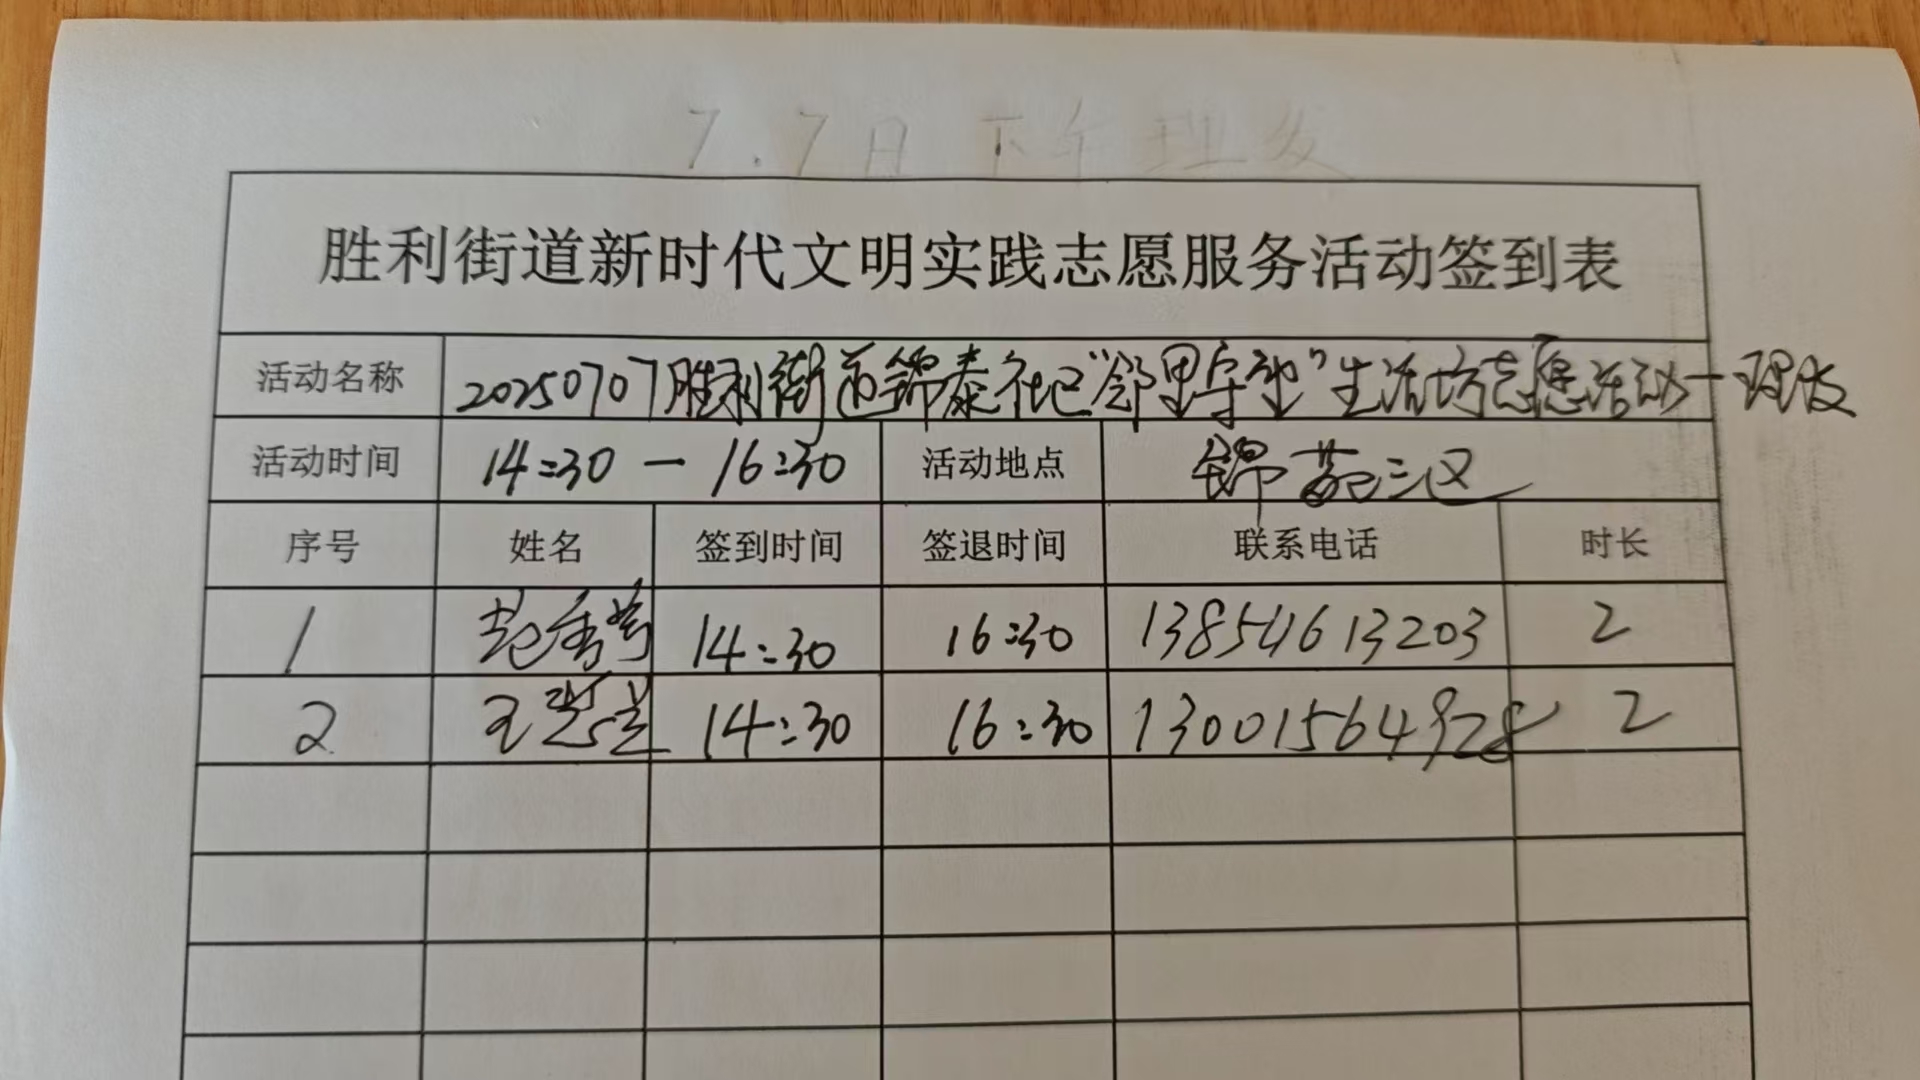 7.7日下午理发
胜利街道新时代文明实践志愿服务活动签到表
活动名称 20250707胜利街道锦泰社区“邻里守望”生活坊志愿活动一理发
活动时间 14:30 — 16:30 活动地点 锦苑三区
序号 姓名 签到时间 签退时间 联系电话 时长
1 14:30 16:30 13854613203 2
2 王 14:30 16:30 13001564928 2